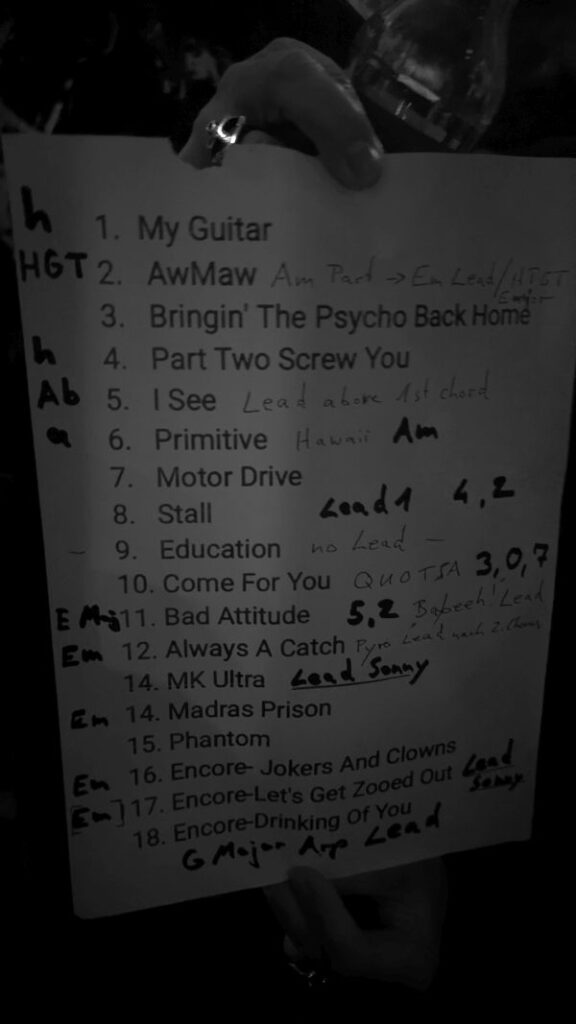 h 1. My Guitar
HGT 2. AwMaw Am Part → Em Lead/HTGT
E major
3. Bringin' The Psycho Back Home
h 4. Part Two Screw You
Ab 5. I See Lead above 1st chord
a 6. Primitive Hawaii Am
7. Motor Drive
8. Stall Lead 1 4,2
- 9. Education no Lead -
10. Come For You QUOTSA 3,0,7
E Maj 11. Bad Attitude 5,2 Lead
Em 12. Always A Catch Pyro Lead nach 2. Chorus
14. MK Ultra Lead Sonny
Em 14. Madras Prison
15. Phantom
Em 16. Encore- Jokers And Clowns
[Em] 17. Encore-Let's Get Zooed Out Lead Sonny
18. Encore-Drinking Of You
G Major Arp Lead